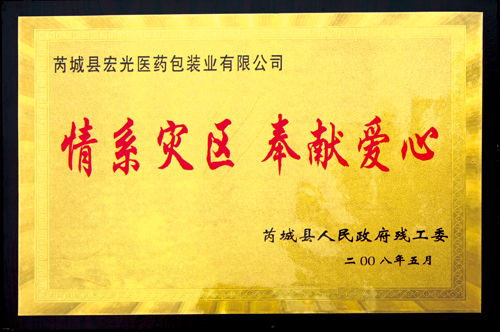 芮城县宏光医药包装业有限公司
情系灾区 奉献爱心
芮城县人民政府残工委
二00八年五月